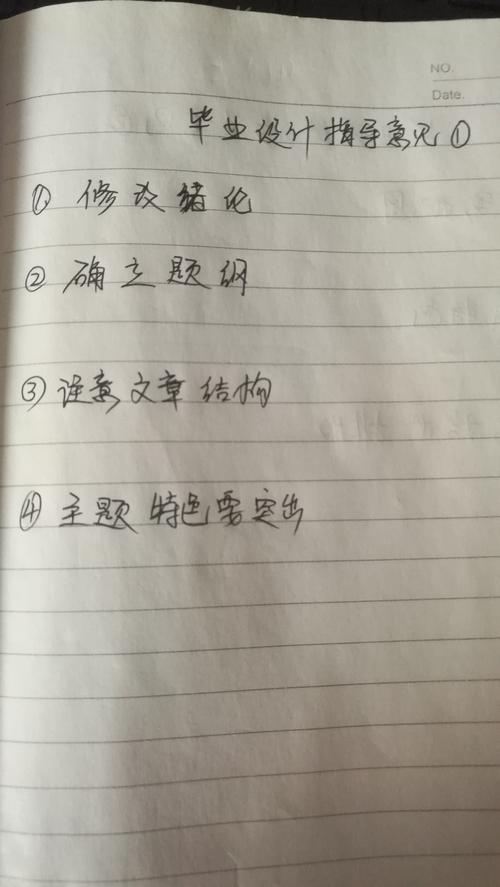 NO.
Date.
毕业设计指导意见①
① 修改绪论
② 确立题纲
③ 注意文章结构
④ 主题特色要突出